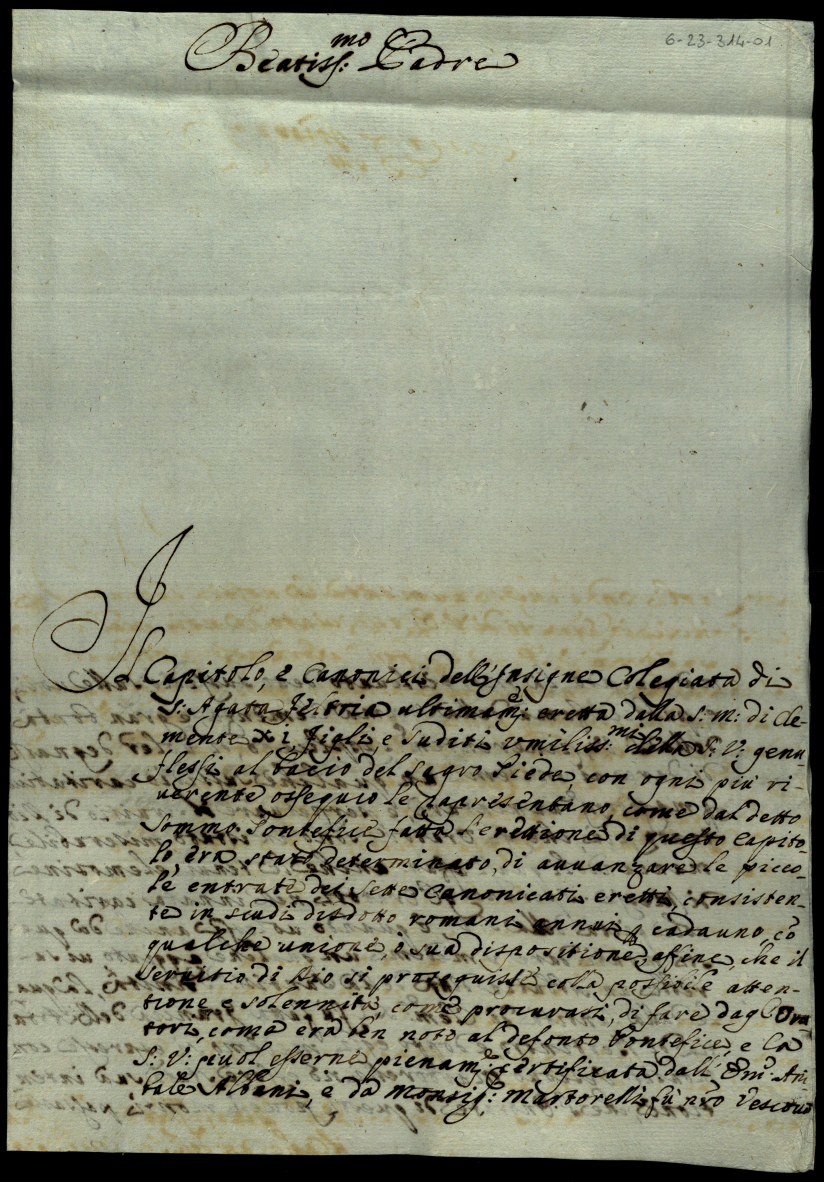 6-23-314-01
Beatiss:mo Padre
Il Capitolo, e Canonici dell'Insigne Colegiata di
S: Agata Feltria ultimam:e eretta dalla S: m: di Cle-
mente XI, figli, e Suditi umiliss:mi della S: V: genu-
flessi al bacio del Sagro Piede, con ogni più ri-
verente ossequio le rapresentano, come dal detto
Sommo Pontefice fatta l'erettione di questo Capito-
lo, era stato determinato, di auuanzare le picco-
le entrate dei Sette Canonicati eretti, consisten-
te in scudi disdotto romani annui p cadauno, cõ
qualche unione, ò sua dispositione, affine, che il
servitio di Dio si proseguisse colla possibile atten-
tione e solennità, come procurasi, di fare dagl'Ora-
tori, come era ben noto al defonto Pontefice, e la
S: V: puol esserne pienam:e certificata dall'Em:o Ani-
bale Albani, e da Monsig:r Martorelli fù nrõ Vescovo